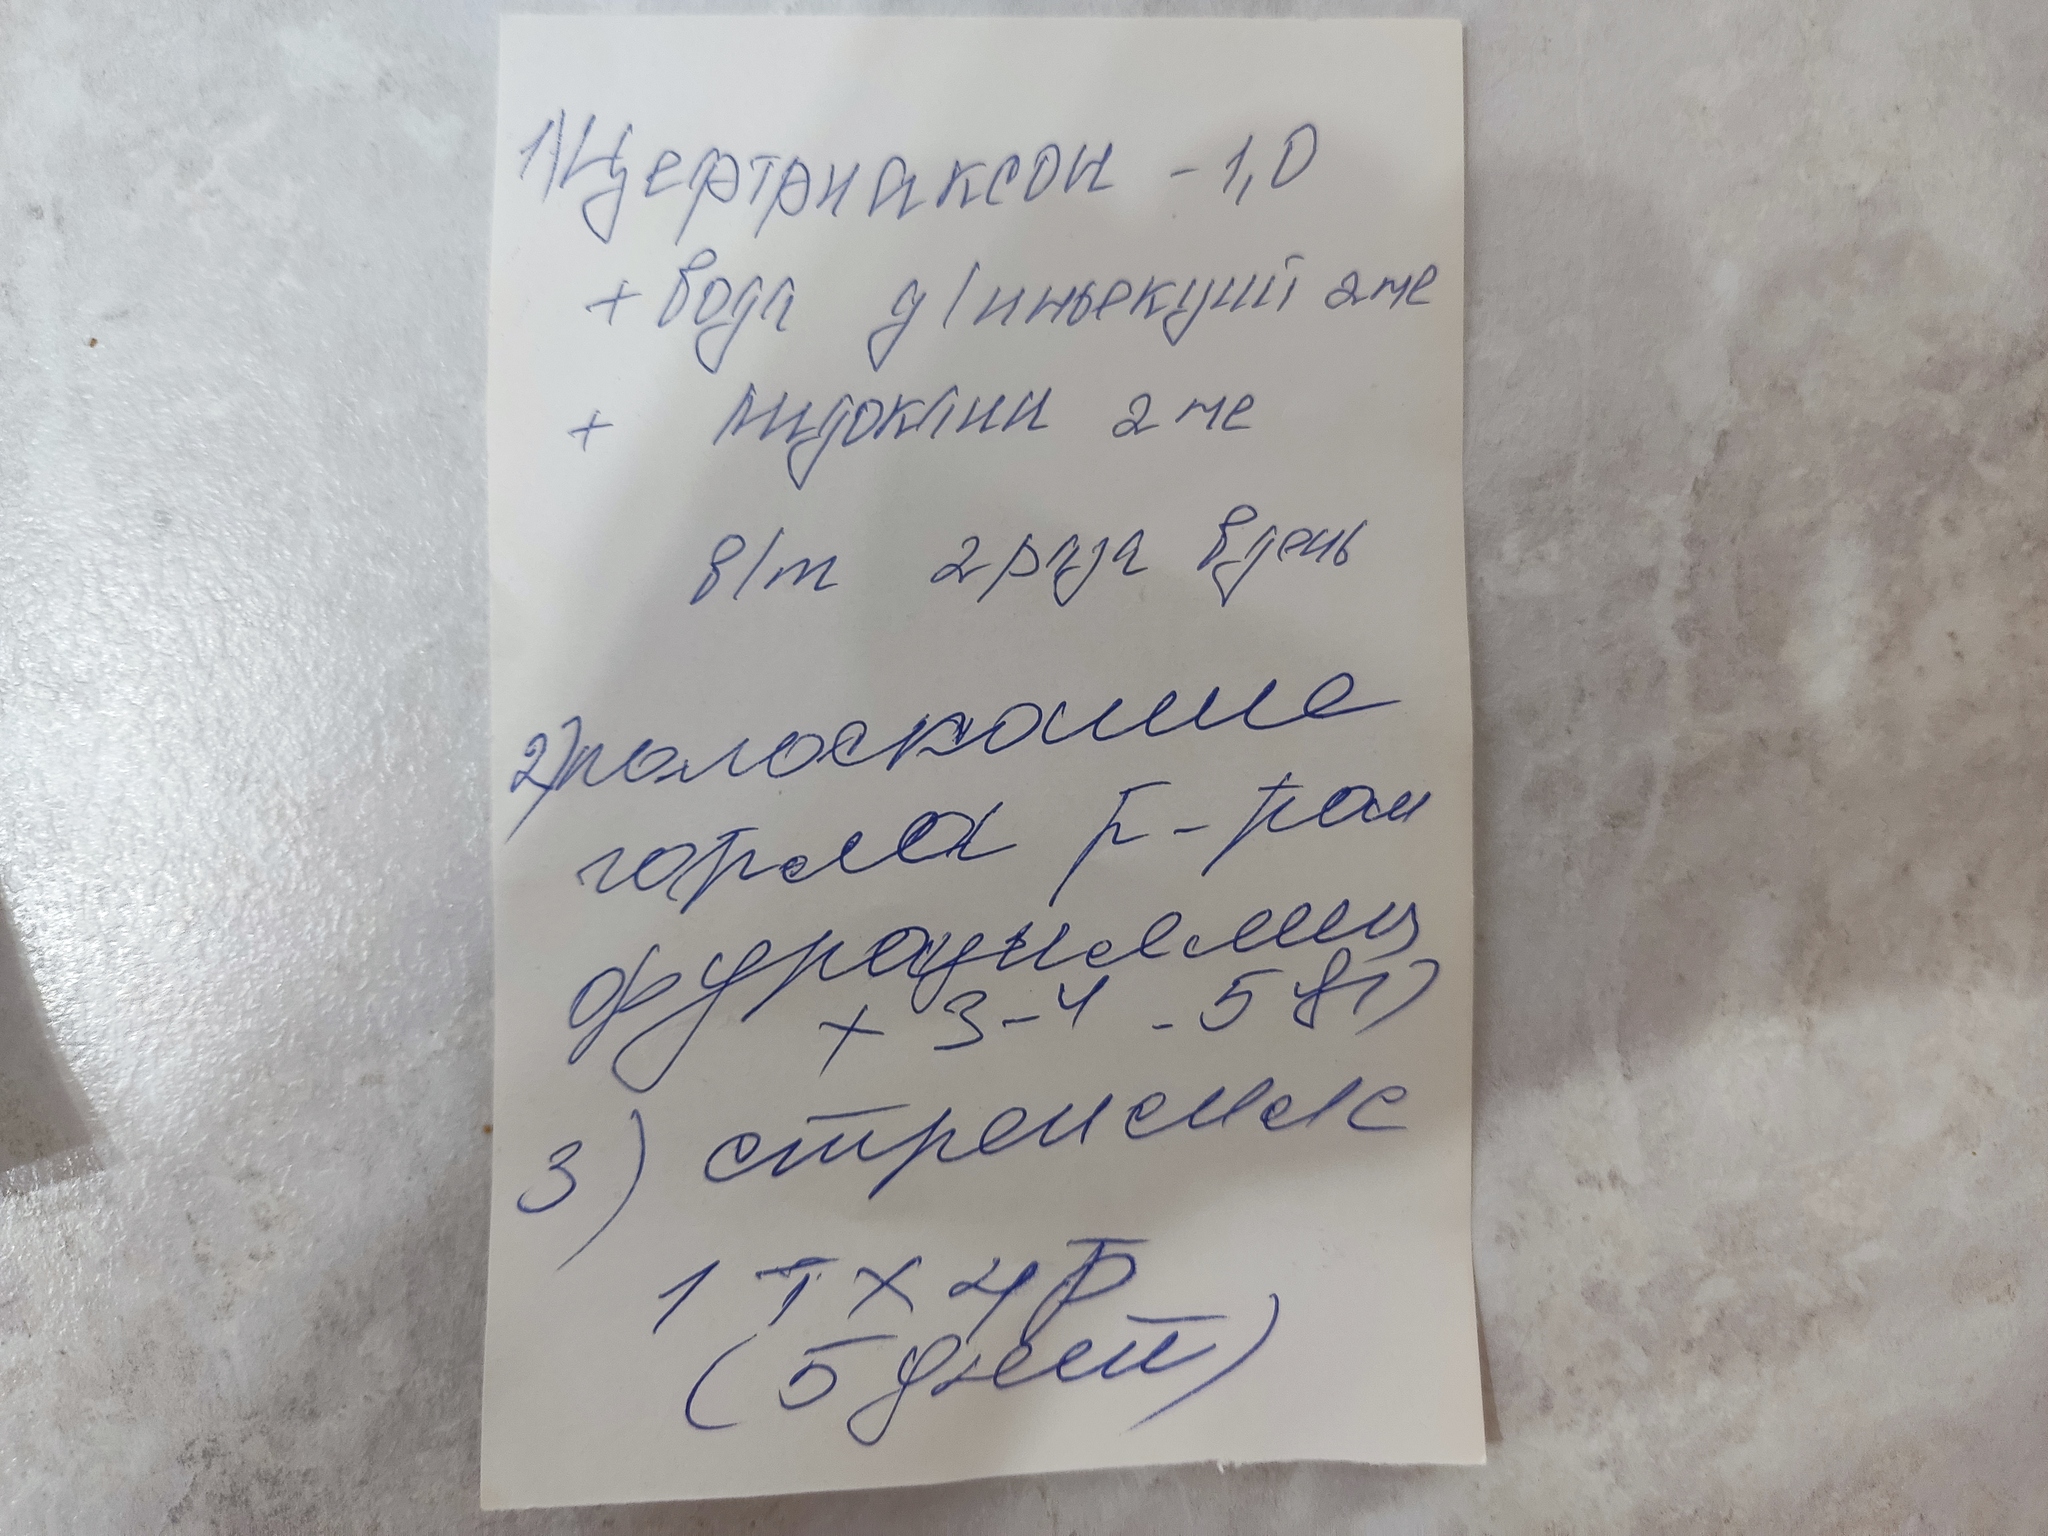 1) Цертриаксон - 1,0
+ вода д/инъекций 2 мл
+ лидокаин 2 мл
в/м 2 раза в день
2) полоскание
горла р-ром
фурацилина
х 3-4 - 5
3) стрепсилс
1 т х 4 р
(5 дней)